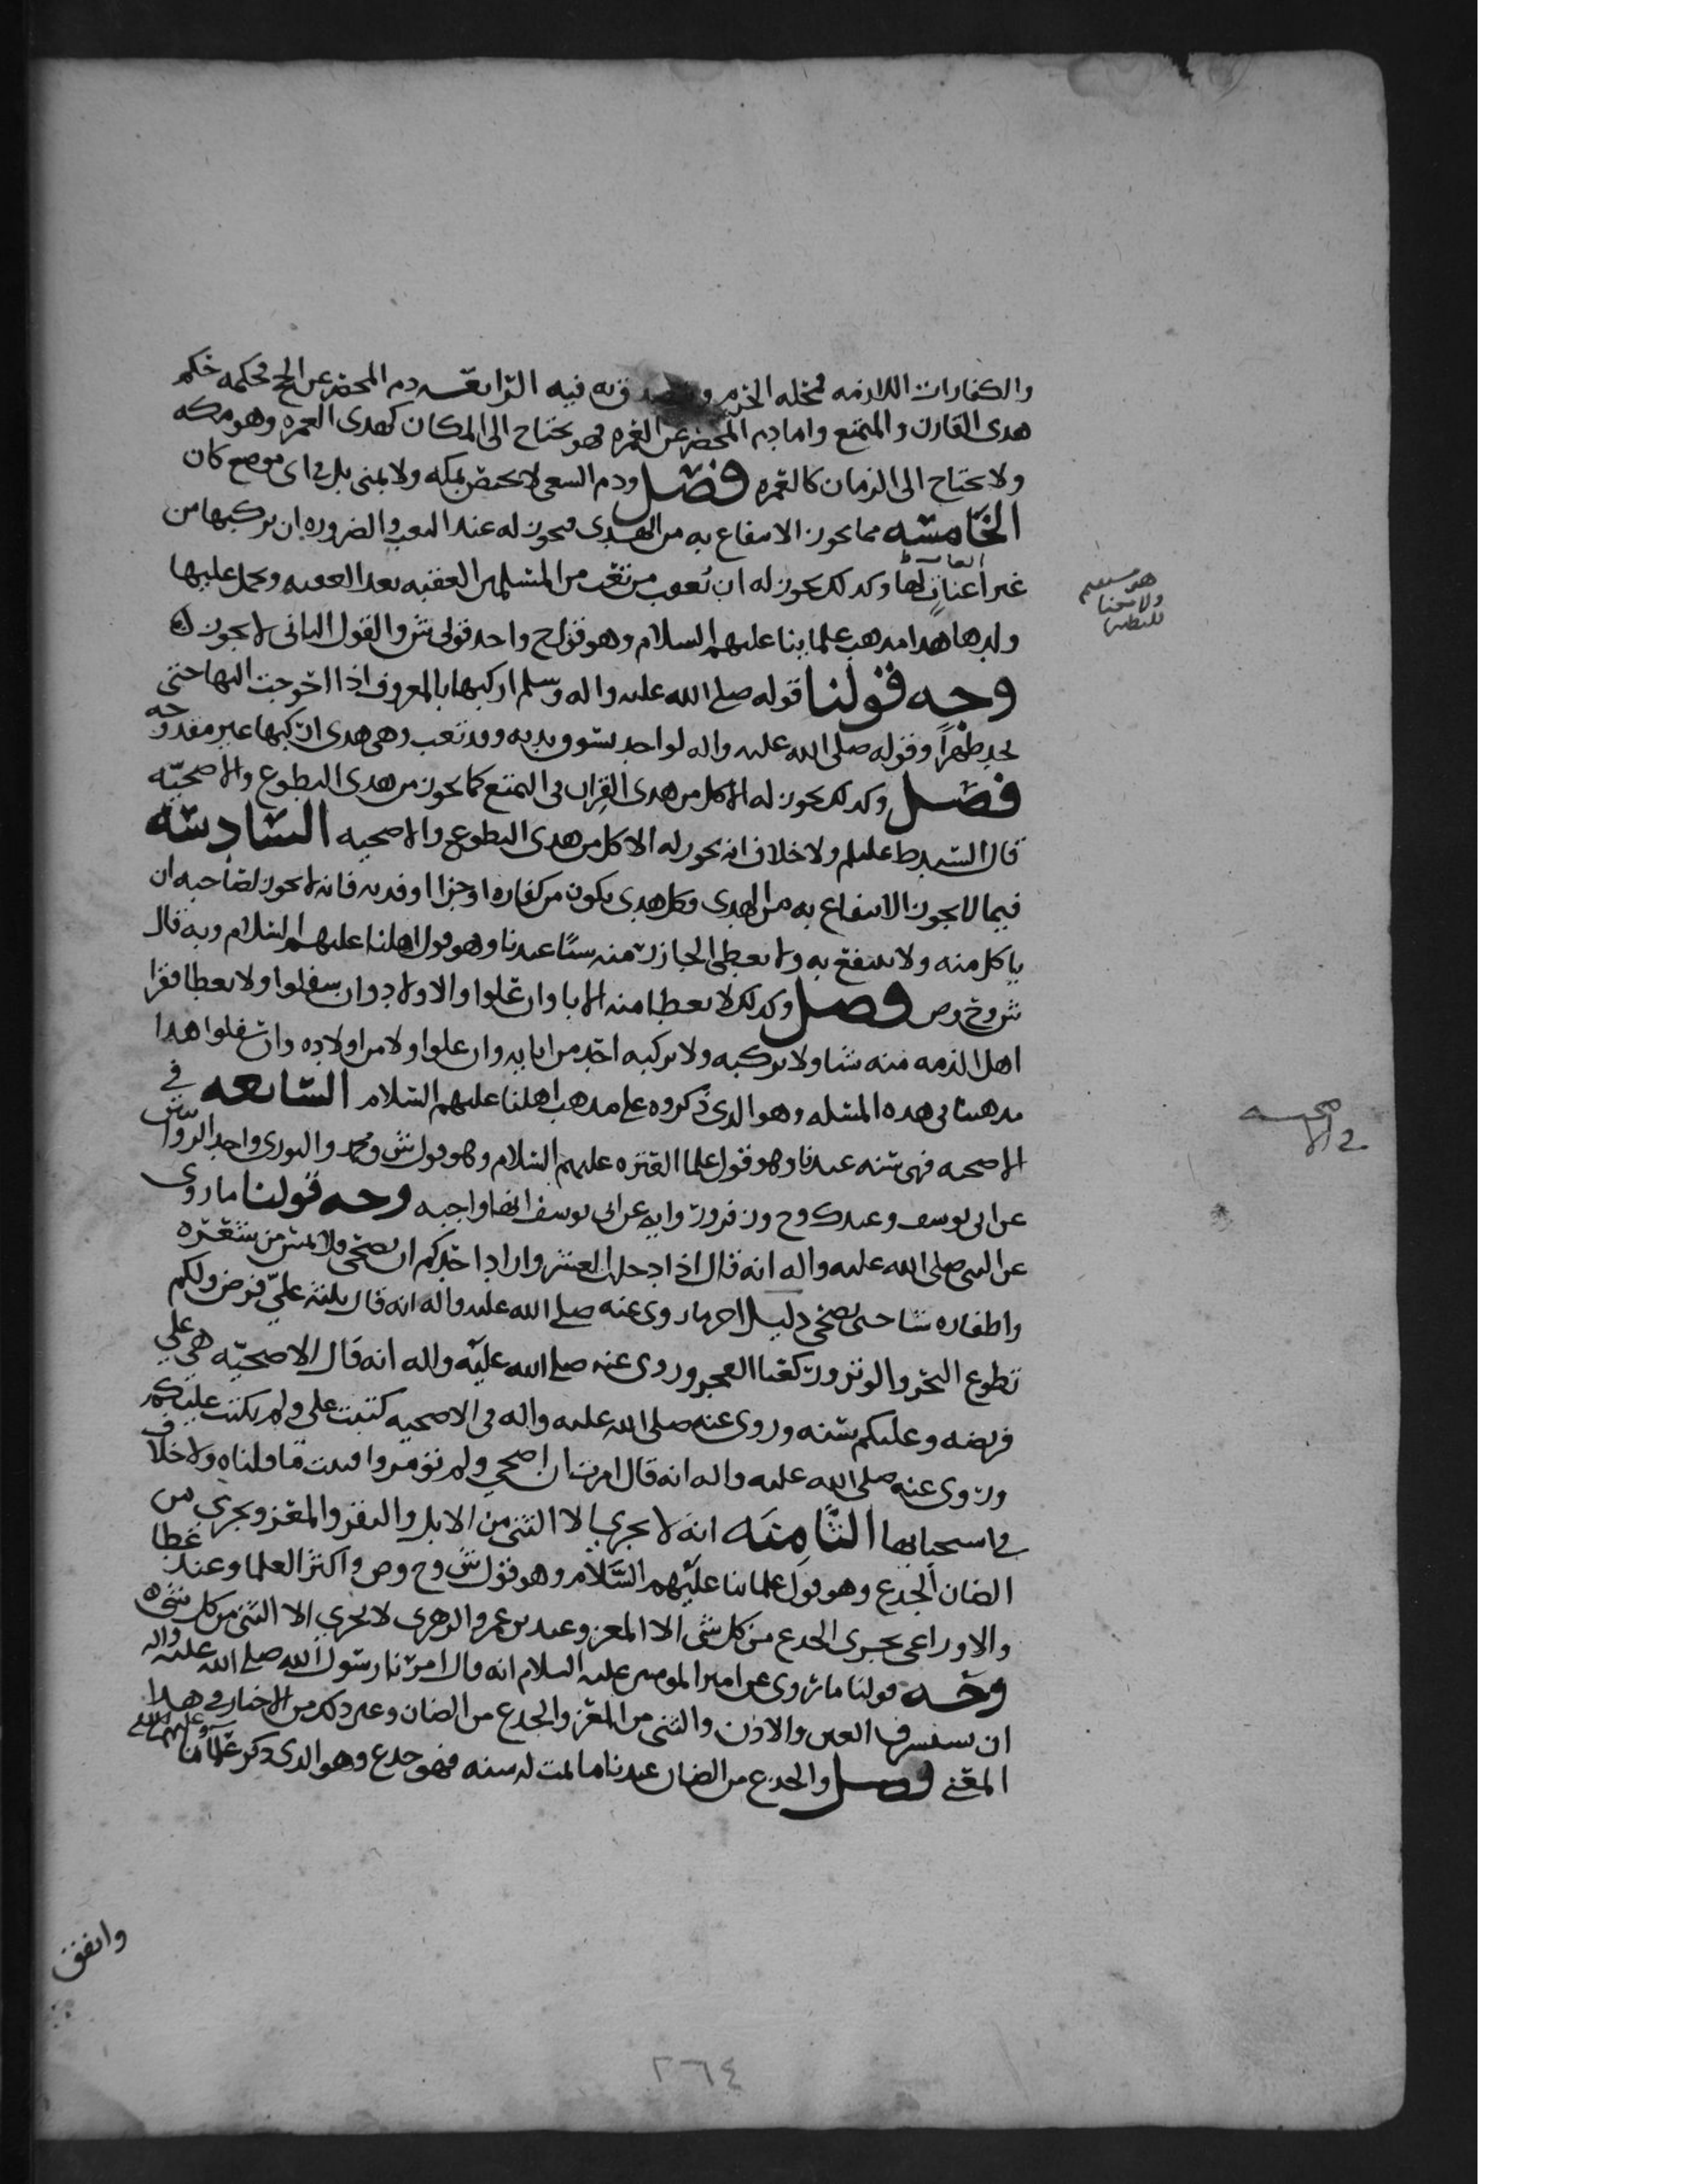 والكفارات اللازمه فمحله الحرم و فيه الرابعه دم المحصر عن الحج فحكمه حكم
هدى القارن والمتمتع واما دم المحصر عن العمره فهو يحتاج الى المكان كهدى العمره وهو مكه
ولا يحتاج الى الزمان كالعمره فصل ودم السعى لا يختص بمكه ولا بمنى بل فى اى موضع كان
الخامسه مما يجوز الانتفاع به من الهدى فيجوز له عند التعب والضروره ان يركبها من
غير اعنات لها وكذلك يجوز له ان يُعقب من تعب من المسلمين العقبه بعد العقبه ويحمل عليها
ولدها هذا مذهب علمائنا عليهم السلام وهو قول ح واحد قولى ش والقول الثانى لا يجوز له
وجه قولنا قوله صلى الله عليه واله وسلم اركبها بالمعروف اذا احوجت اليها حتى
تجد ظهراً وقوله صلى الله عليه واله لواحد يسوق بدنه وقد تعب وهى هدى اركبها غير مفدوحه
فصل وكذلك يجوز له الاكل من هدى القِران فى التمتع كما يجوز من هدى التطوع والاضحيّه
قال السيد ط عليلم ولا خلاف انه يجوز له الاكل من هدى التطوع والاضحيه السادسه
فيما لا يجوز الانتفاع به من الهدى وكل هدى يكون من كفاره او جزا او فديه فانه لا يجوز لصاحبه ان
ياكل منه ولا ينتفع به ولا يعطى الجازر منه شيًا عندنا وهو قول اهلنا عليهم السلام وبه قال
ش وح وص فصل وكذلك لا يعطا منه الابا وان علوا والاولاد وان سفلوا ولا يعطا فقرا
اهل الذمه منه شيا ولا يركبه ولا يركبه احد من ابايه وان علوا ولا من اولاده وان سفلوا هذا
مذهبنا فى هذه المسله وهو الذى ذكروه على مذهب اهلنا عليهم السلام السابعه فى
الاضحيه فهى سنه عندنا وهو قول علما العتره عليهم السلام وهو قول ش ومحمد والثورى واحد الروايتين
عن ابى يوسف وعند ك وح وزفر وروايه عن ابى يوسف انها واجبه وجه قولنا ما روى
عن النبى صلى الله عليه واله انه قال اذا دخل العشر واراد احدكم ان يضحى فلا يمس من شعره
واظفاره شيا حتى يضحى دليل اخر ما روى عنه صلى الله عليه واله انه قال ثلث علىّ فرض ولكم
تطوع النحر والوتر وركعتا الفجر وروى عنه صلى الله عليه واله انه قال الاضحيّه هى على
فريضه وعليكم سنه وروى عنه صلى الله عليه واله فى الاضحيه كتبت على ولم تكتب عليكم
وروى عنه صلى الله عليه واله انه قال امرت ان اضحي ولم تؤمروا فثبت ما قلناه ولا خلاف
فى استحبابها الثامنه انه لا يجزى الا الثنى من الابل والبقر والمعز ويجزي من
الضان الجذع وهو قول علمائنا عليهم السّلام وهو قول ش وح وص واكثر العلما وعند عطا
والاوزاعى يجزى الجذع من كل شى الا المعز وعند بن عمر والزهرى لا يجزي الا الثنى من كل شى
وجه قولنا ما روى عن امير المومنين عليه السلام انه قال امرنا رسول الله صلى الله عليه واله
ان نستشرف العين والاذن والثنى من المعز والجذع من الضان وغير ذلك من الاخبار فى هذا
المعنى فصل والجذع من الضان عندنا ما تمت له سنه فهو جذع وهو الذى ذكر علماؤنا عليهم السلام
فى الاضحيه
واتفق
٢٦٤